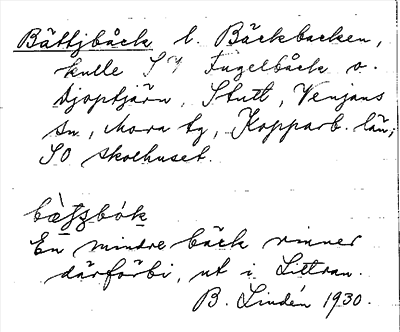 Bättjbåck l. Bäckbacken,
kulle SV Fugelbåck o.
Djoptjärn, Stutt, Venjans
sn., Mora tg, Kopparb. län;
SO skolhuset.
En mindre bäck rinner
därförbi, ut i Littran.
B. Lindén 1930.